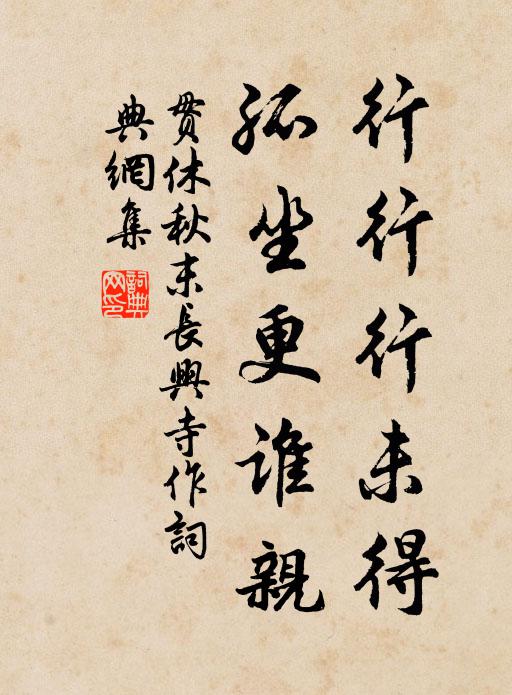 行行行未得
孤坐更誰親
貫休秋末長興寺作詞
典網集
詞典网印